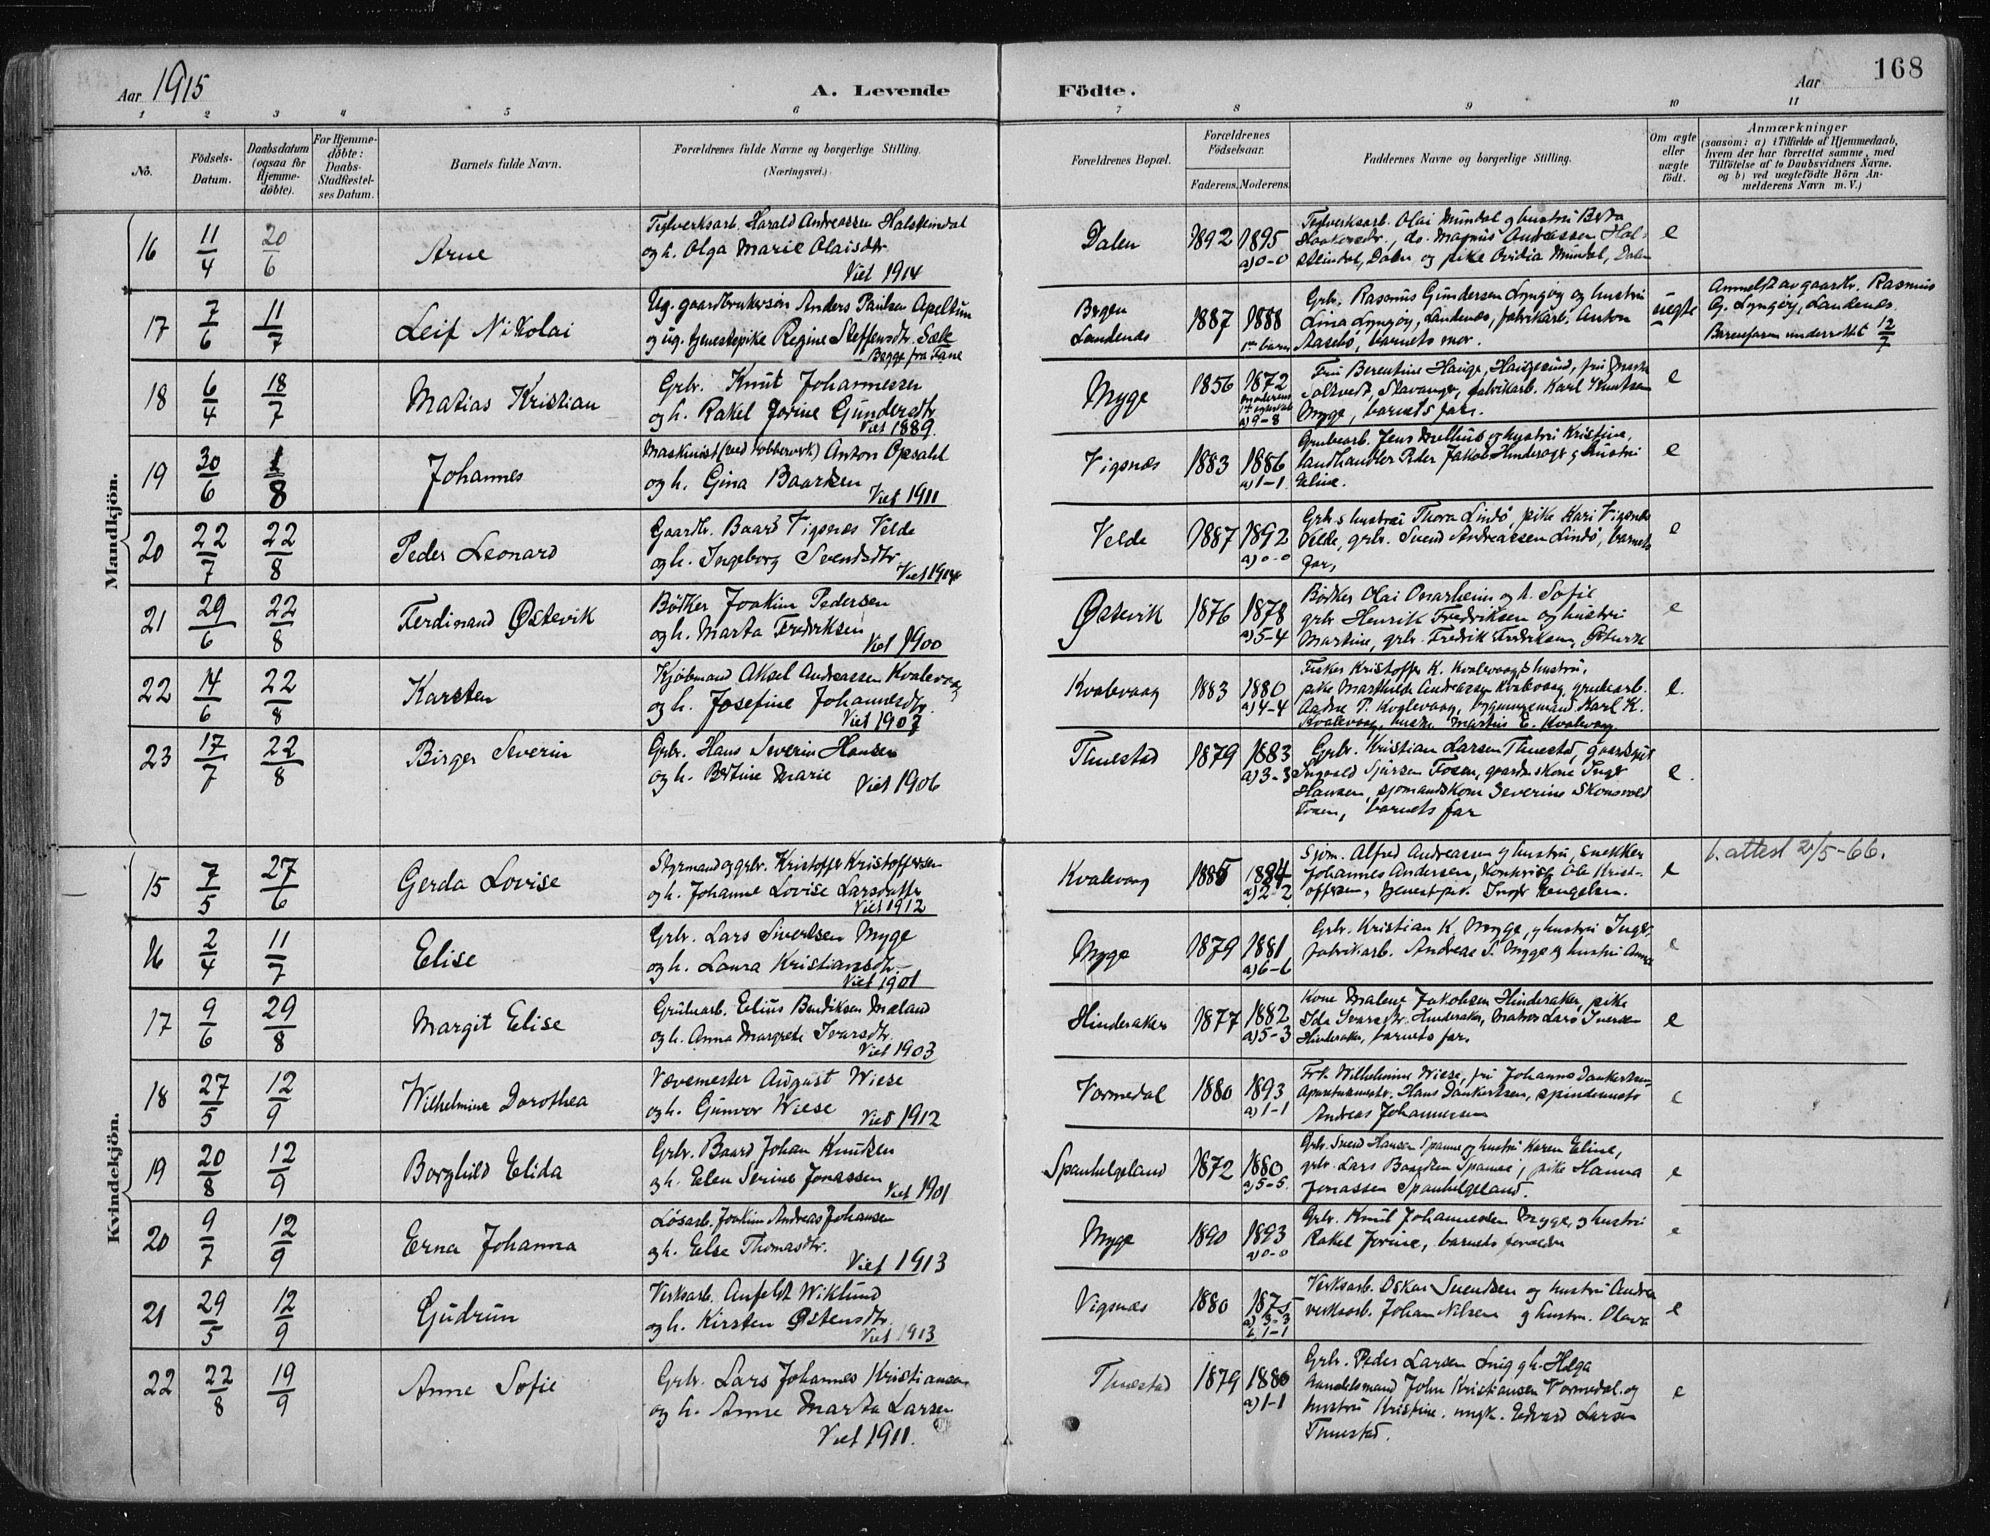 168
Aar 1915
A. Levende
Födte.
Aar
1 2 3 4 5 6 7 8 9 10 11
No.
Födsels-Datum.
Daabsdatum (ogsaa for Hjemmedöbte).
For Hjemmedöbte: Daabs-Stadfæstelses Datum.
Barnets fulde Navn.
Forældrenes fulde Navne og borgerlige Stilling. (Næringsvei.)
Forældrenes Bopæl.
Forældrenes Födselsaar.
Faderens. Moderens.
Faddernes Navne og borgerlige Stilling.
Om ægte eller uægte födt.
Anmærkninger
(saasom: a) i Tilfælde af Hjemmedaab,
hvem der har forrettet samme, med
Tilföielse af to Daabsvidners Navne.
og b) ved uægtefödte Börn Anmelderens Navn m. V.)
Mandkjön.
16 11/4 20/6 Arne
Teglverksarb. Harald Andreassen Halsteindal
og h. Olga Marie Olaisdtr.
Viet 1914
Dalen 1892 1895
a) 0-0
Teglverksarb. Olai Mundal og hustru Berta
, do. Magnus Andreassen Halsteindal, Dalen og pike Ovidia Mundal, Dalen
e
17 7/6 11/7 Leif Nikolai
Ug. gaardbrukersøn Anders Paulsen Apeltun
og ug. tjenestepike Regine Steffensdtr. Sæle
Begge fra Fane
Bergen
Landenes
1887 1888
1ste barn
Grbr. Rasmus Gundersen Lyngøy og hustru
Lina Lyngøy, Landenes, fabrikarb. Anton
Aasebø, barnets mor.
uegte
Anmeldt av gaardbr. Rasmus
G. Lyngøy, Landenes.
Barnefaren underrettet 12/7
18 6/4 18/7 Matias Kristian
Grbr. Knut Johannessen
og h. Rakel Jorine Gundersdtr.
Viet 1889.
Myge 1856 1872
a) 9-8
Fru Berentine Hauge, Haugesund, fru
Stavanger, fabrikarb. Karl Knutsen
Myge, barnets far.
e
19 30/6 1/8 Johannes
Maskinist (ved kobberverk) Anton Opsahl
og h. Gina Baardsen
Viet 1911
Vigsnes 1883 1886
a) 1-1
Grubearb. Jens Melhus og hustru Kristine,
landhandler Peder Jakob Hinderager og hustru
Eline.
e
20 22/7 22/8 Peder Leonard
Gaardbr. Baard Vigsnes Velde
og h. Ingeborg Svendsdtr.
Viet 1914
Velde 1887 1892
a) 0-0
Grbr.s hustru Thora Lindø, pike Kari Vigsnes
Velde, grbr. Svend Andreassen Lindø, barnets
far,
e
21 29/6 22/8 Ferdinand Østevik
Bødker Joakim Pedersen
og h. Marta Fredriksen
Viet 1900
Østevik 1876 1878
a) 5-4
Bødker Olai Onarheim og h. Sofie
grbr Henrik Fredriksen og hustru
Martine, grbr. Fredrik Fredriksen,
e
22 14/6 22/8 Karsten
Kjøbmand Aksel Andreassen Kvalevaag
og h. Josefine Johannesdtr.
Viet 1907
Kvalevaag 1883 1880
a) 4-4
Fisker Kristoffer K. Kvalevaag & hustru,
pike Mathilde Andreassen Kvalevaag, grubearb.
Aadne T. Kvalevaag, bygningsmand Karl K.
Kvalevaag, Martin E. Kvalevaag
e.
23 17/7 22/8 Birger Severin
Grbr. Hans Severin Hansen
og h. Bertine Marie
Viet 1906
Tuestad 1879 1883
a) 3-3
Grbr. Kristian Larsen Tuestad, gaardsgut
Ingvald Sjursen Fosen, gaardmskone Inger
Hansen, sjomandskone Severine Skonsvold
Fosen, barnets far
e.
Kvindekjön.
15 7/5 27/6 Gerda Lovise
Styrmand og grbr. Kristoffer Kristoffersen
og h. Johanne Lovise Larsdatter
Viet 1912
Kvalevaag 1885 1884
a) 2-2
Sjøm. Alfred Andreassen og hustru, snekker
Johannes Andersen, kontorist Ole Kristoffersen, tjenestpi. Inger Hengelsen.
e
b. attest 21/5-66.
16 2/4 11/7 Elise
Grbr. Lars Sivertsen Myge
og h. Laura Kristiansdtr.
Viet 1901
Myge 1879 1881
a) 6-6
Grbr. Kristian K. Myge, og hustru Inger,
fabrikarb. Andreas S. Myge og hustru Anna
e
17 9/6 29/8 Margit Elise
Grubearb. Elius Bendiksen Mæland
og h. Anna Margrete Ivarsdtr.
Viet 1903
Hinderaker 1877 1882
a) 5-3
Kone Malene Jakobsen Hinderaker, pike
Ida Ivarsdtr. Hinderaker, matros Lars Iversen
Hinderaker, barnets far.
e
18 27/5 12/9 Wilhelmine Dorothea
Vævemester August Wiese
og h. Gunvor Wiese
Viet 1912
Vormedal 1880 1893
a) 1-1
Frk. Wilhelmine Wiese, fru Johanna Dankertsen
Hans Dankertsen, spindemester
Andreas Johannessen
e
19 20/8 12/9 Borghild Elida
Grbr. Baard Johan Knudsen
og h. Elen Serine Jonassen
Viet 1901
Spanhelgeland 1872 1880
a) 5-5
Grbr. Svend Hansen Spanne og hustru Karen Eline,
grbr. Lars Baardsen Spanne, pike Hanna
Jonassen Spanhelgeland.
e
20 9/7 12/9 Erna Johanna
Løsarb. Joakim Andreas Johansen
og h. Else Thomasdtr.
Viet 1913
Myge 1890 1893
a) 0-0
Grbr. Knut Johannessen Myge, og hustru
Rakel Jorine, barnets forældre
e
21 29/5 12/9 Gudrun
Verksarb. Anfeldt Wiklund
og h. Kirsten Østensdtr.
Viet 1913
Vigsnes 1880 1875
a) 3-3
b) 1-1
Verksarb. Oskar Svendsen og hustru Andrea
verksarb. Johan Nilsen og hustru Olava
e
22 22/8 19/9 Anne Sofie
Grbr. Lars Johannes Kristiansen
og h. Anne Marta Larsen
Viet 1911.
Tuestad 1879 1880
a) 1-1
Grbr. Peder Larsen Snig og h. Helga
handelsmand John Kristiansen Vormedal og
hustru Kristine. ungk. Edvard Larsen
Tuestad.
e